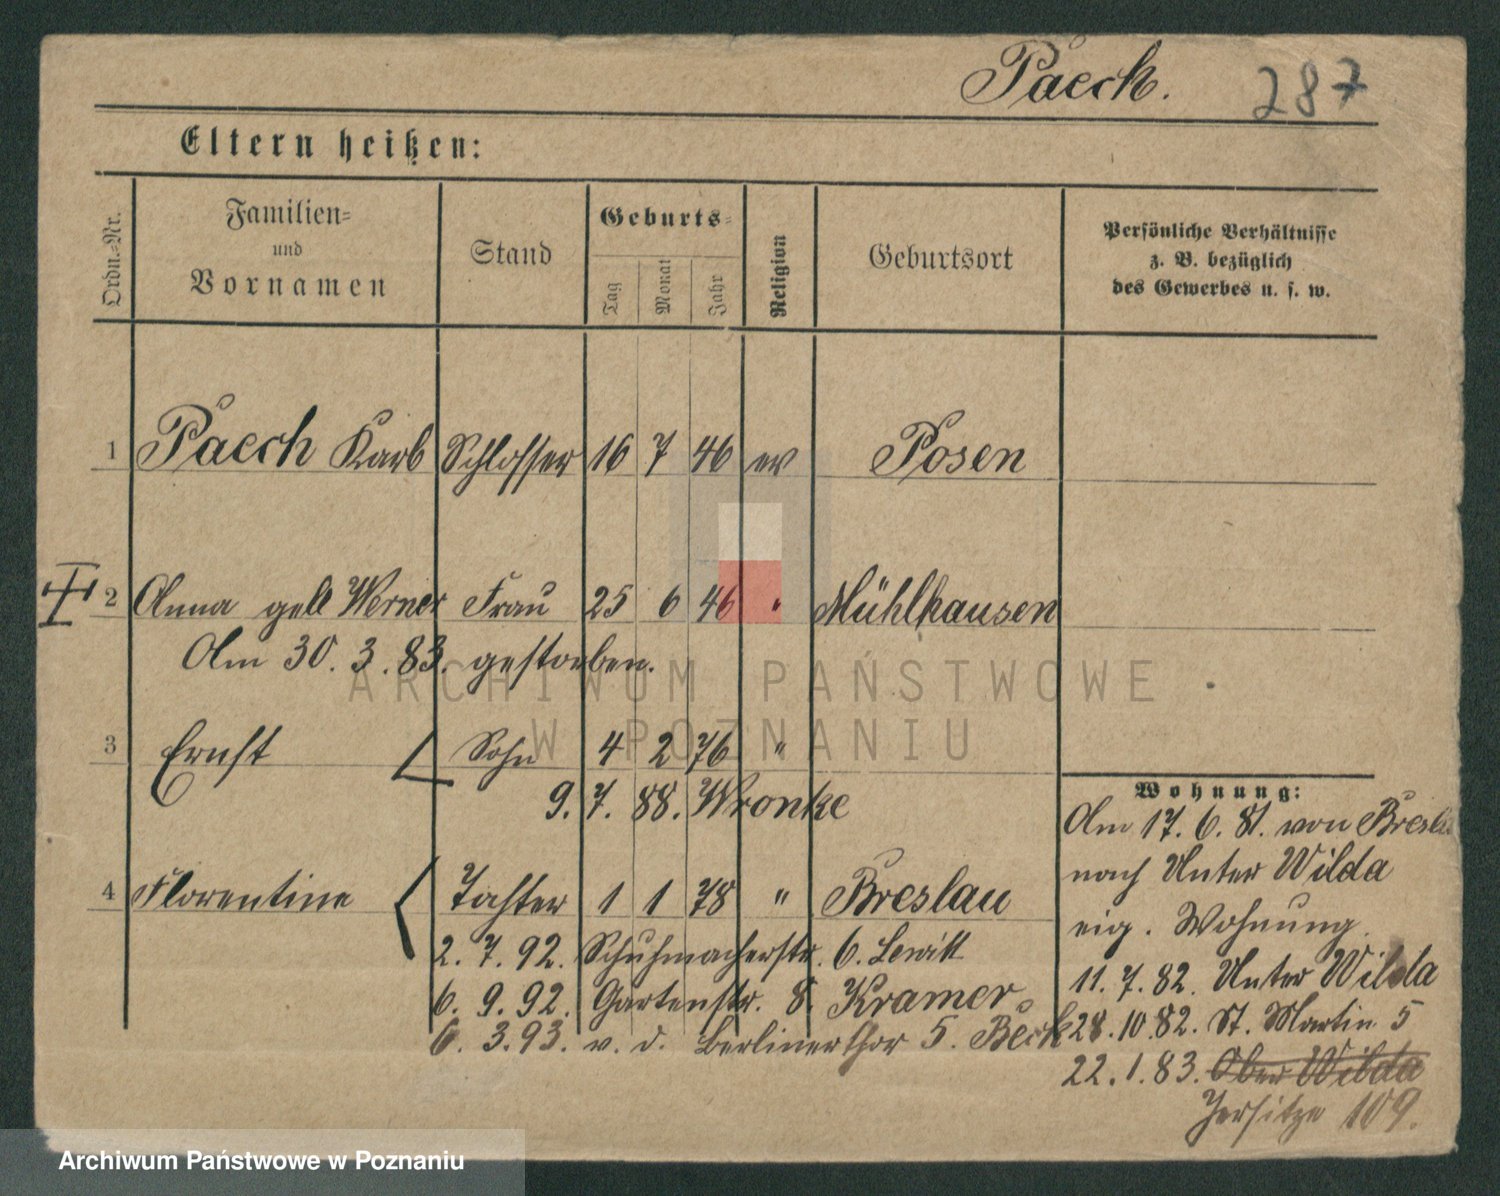 Paech.
287
Eltern heißen:
Ordn.-Nr.
Familien-
und
Vornamen
Stand
Geburts-
Tag
Monat
Jahr
Religion
Geburtsort
Persönliche Verhältnisse
z. B. bezüglich
des Gewerbes u. s. w.
1 Paech Karl Schlosser 16 7 46 ev Posen
2 Anna geb Werner Frau 25 6 46 " Mühlhausen
Am 30. 3. 83. gestorben.
ARCHIWUM PAŃSTWOWE
W POZNANIU
3 Ernst Sohn 4 2 76 "
9. 7. 88. Wronke
4 Florentine Tochter 1 1 78 " Breslau
2. 7. 92. Schuhmacherstr. 6. Lewitt
6. 9. 92. Gartenstr. 8. Kramer
6. 3. 93. v. d. Berlinerthor 5. Beck
Wohnung:
Am 17. 6. 81. von Breslau
nach Unter Wilda
eig. Wohnung.
11. 7. 82. Unter Wilda
28. 10. 82. St. Martin 5
22. 1. 83. Ober Wilda
Jersitze 109.
Archiwum Państwowe w Poznaniu